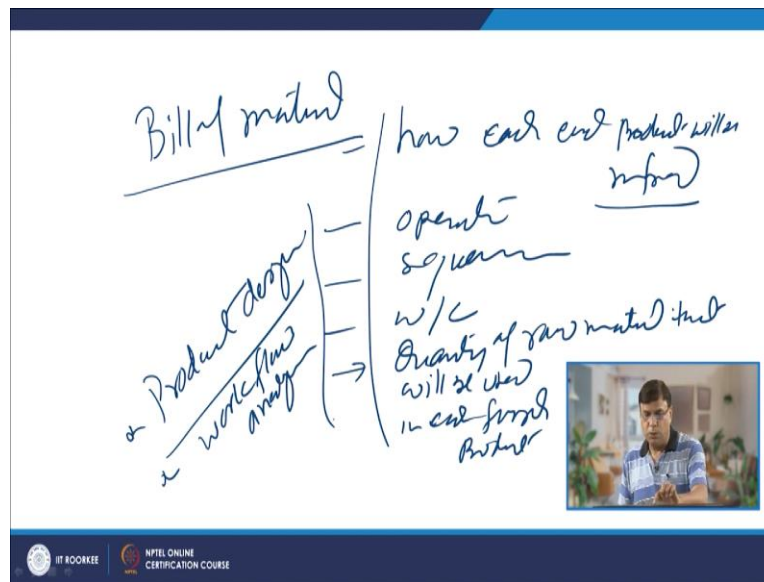 Bill of material
how each end Product will be mfrd
operati
sequen
w/c
Quantity of raw material that
will be used
in each finish
Product
* Product design
* workflow
analysis
IIT ROORKEE
NPTEL ONLINE
CERTIFICATION COURSE